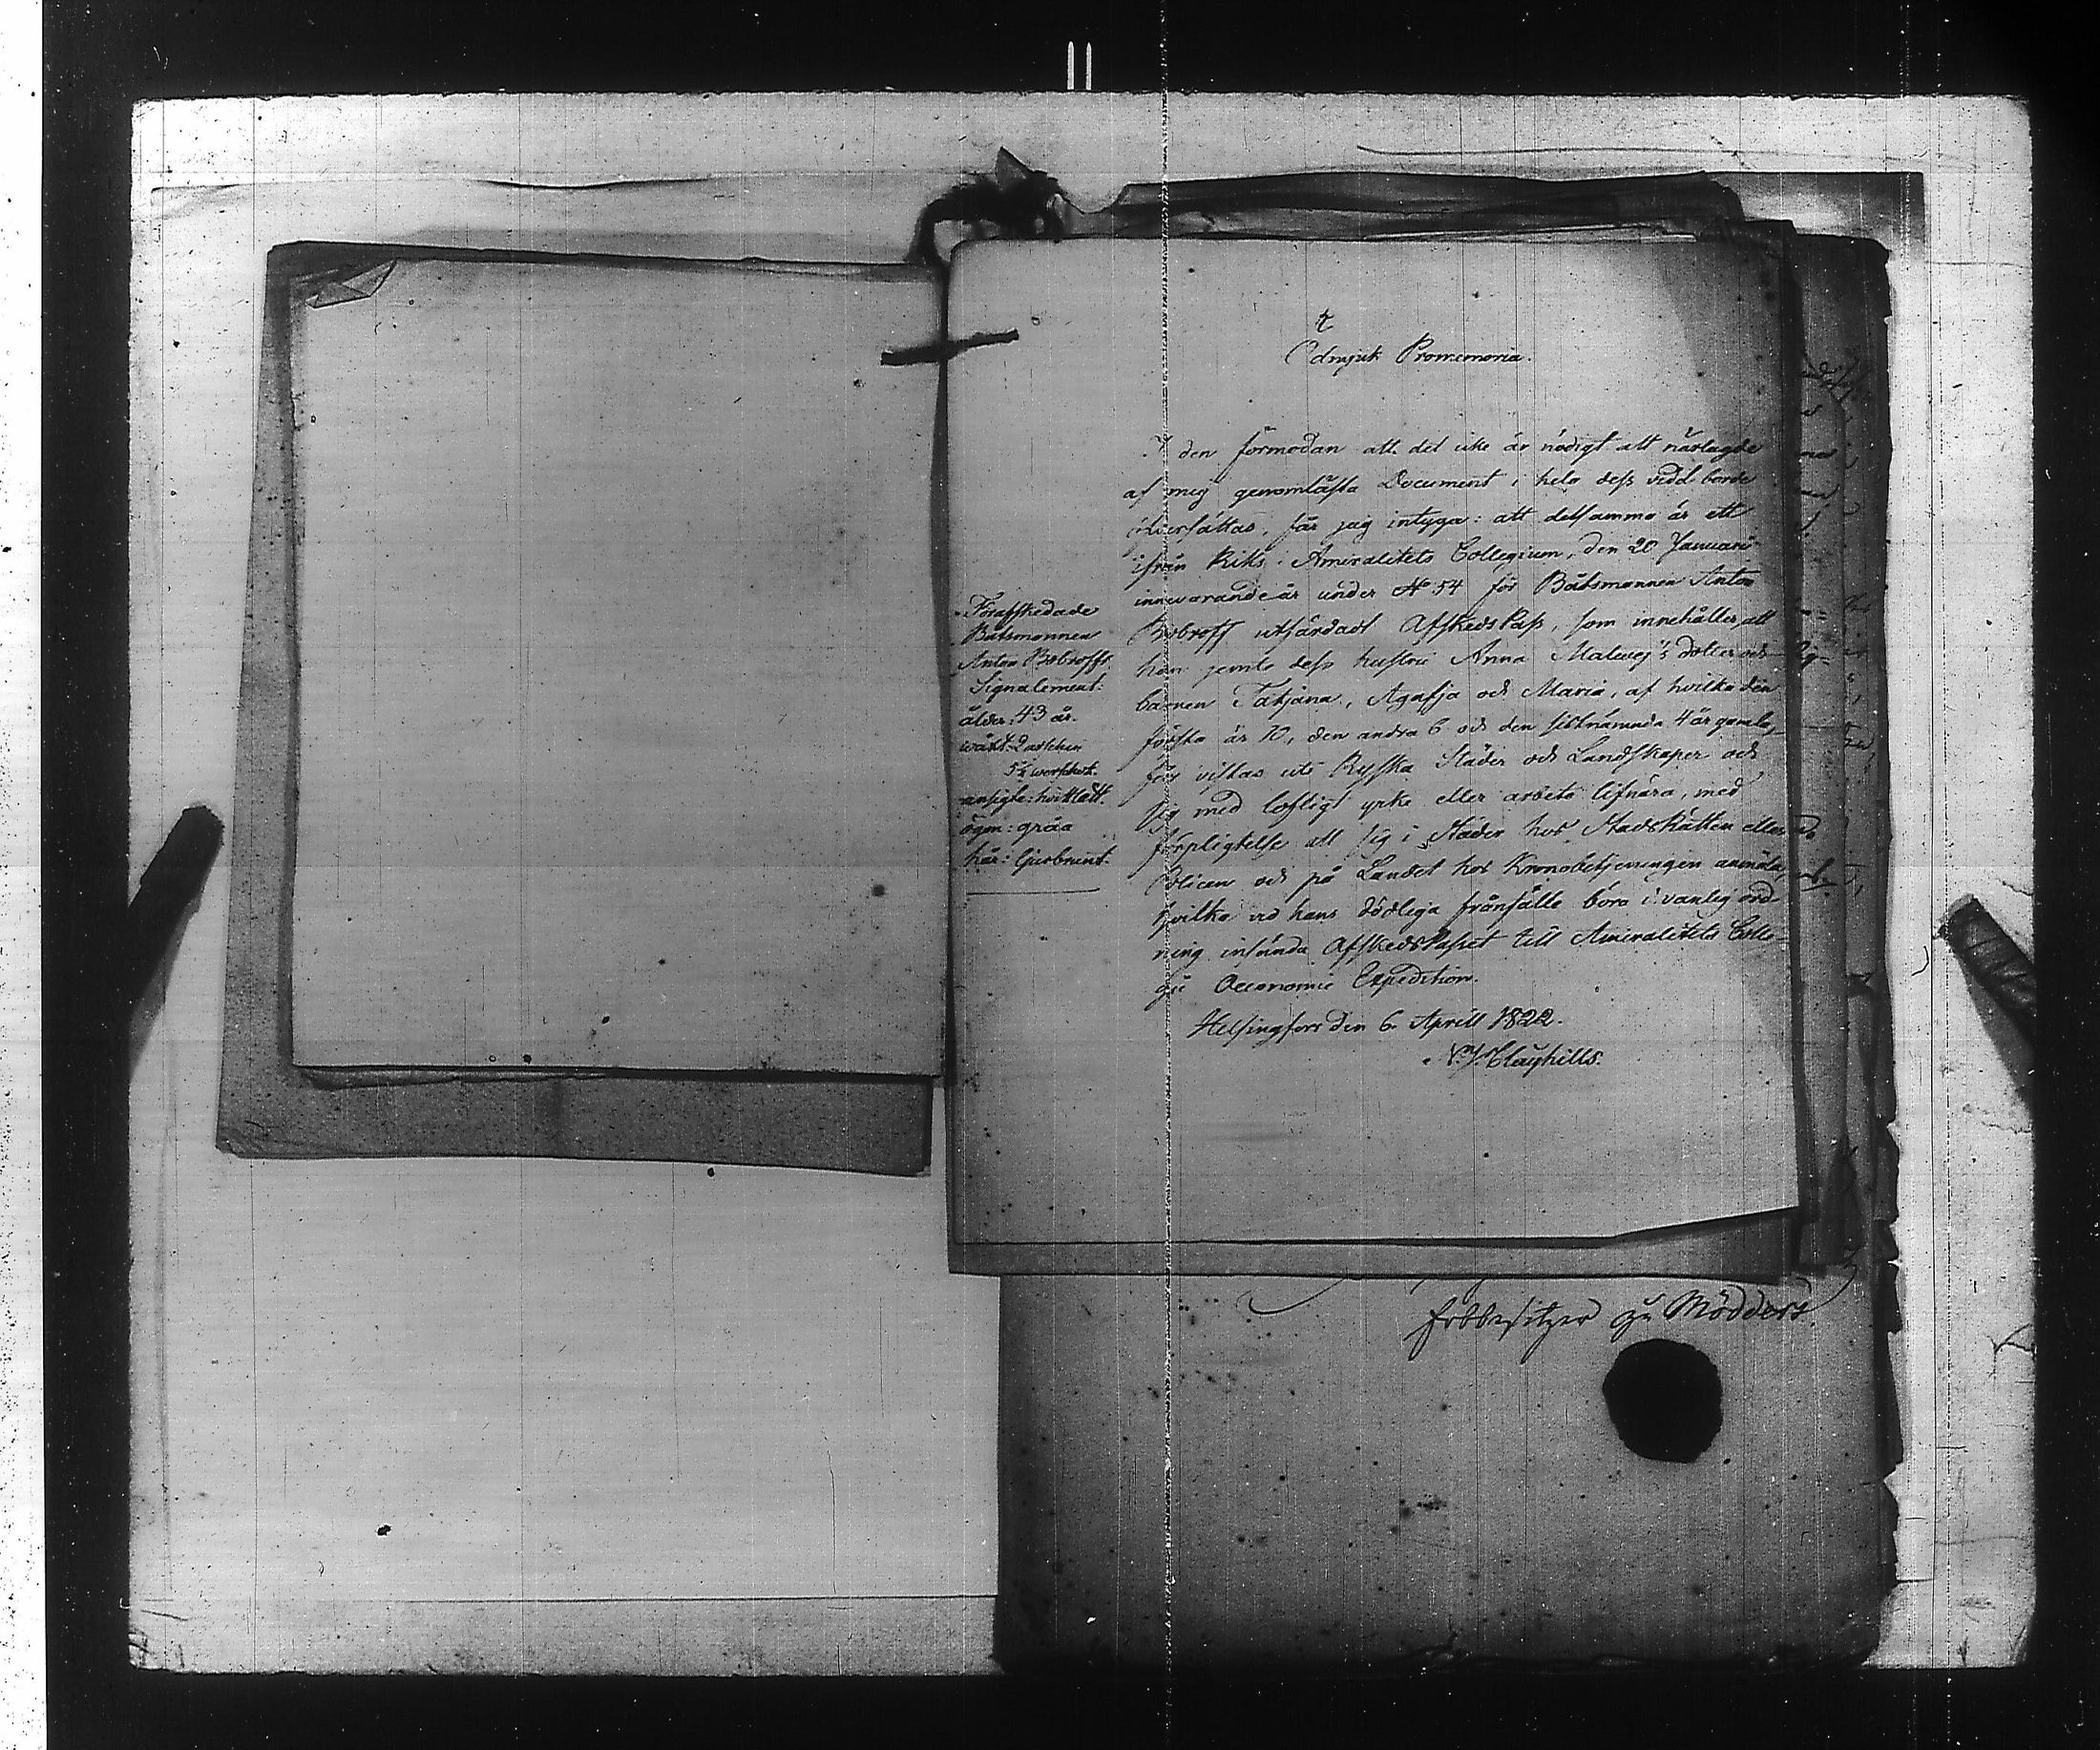 Ödmjuk Promemoria.
I den förmodan att det icke är nödigt att närlagde
af mig genomlästa Document i hela dess vidd borde
öfversättas, får jag intyga: att detsamma är ett
ifrån Riks-Amiralitets Collegium, den 20 Januarii
innevarande år under No 54 för Båtsmannen Anton
Bobroff utfärdadt AfskedsPass, som innehåller, att
han jemte dess hustru Anna Matwej's dotter och
barnen Tatjana, Agafja och Maria, af hvilka den
första är 10, den andra 6 och den sistnämnda 4 år gamla,
får vistas uti Ryska Städer och Landskaper och
sig med lofligt yrke eller arbete lifnära, med
förpligtelse att sig i Städer hos StadsRätten eller
Policen och på Landet hos Kronobetjeningen anmäla,
hvilka vid hans dödliga frånfälle böra i vanlig ord-
ning insända AfskedsPasset till Amiralitets Colle-
gii Oeconomie Expedition.
Helsingfors den 6. Aprill 1822.
Clayhills.
Förafskedade
Båtsmannen
Anton Bobroffs
Signalement:
ålder: 43 år.
wäxt: 2 arschin
5½ werschok.
ansigte: hvitlätt.
ögon: gråa
hår: ljusbrunt.
Erbbesitzer zu Mödders.